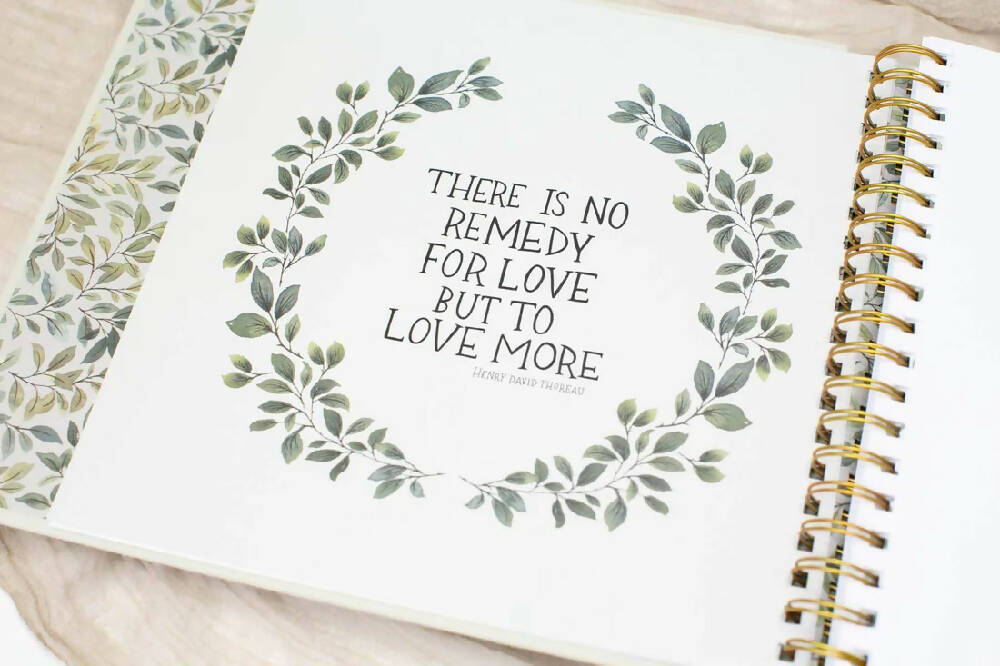 THERE IS NO
REMEDY
FOR LOVE
BUT TO
LOVE MORE
HENRY DAVID THOREAU